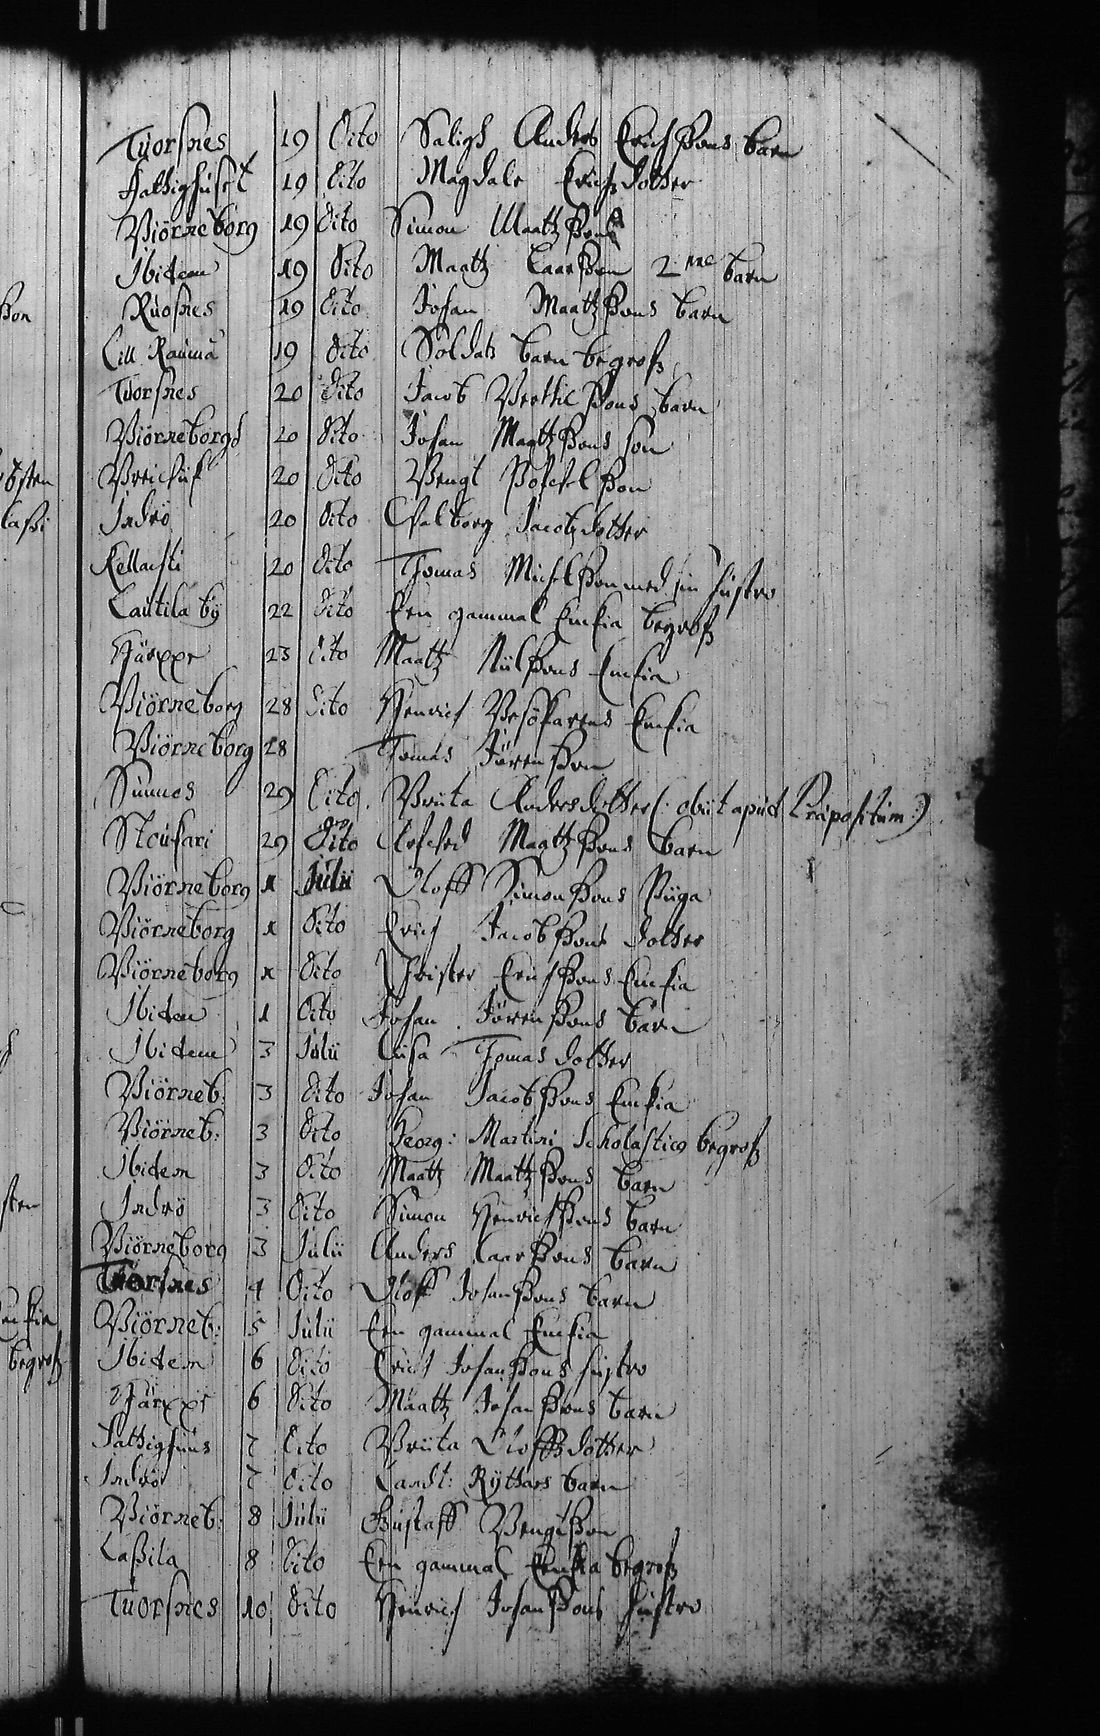 Tuorsnes 19 Dito Saligh Anders Erichßons barn
Fattighuset 19 Dito Magdale Erichsdotter
Biörneborg 19 Dito Simon Maatzßons
Ibidem 19 Dito Maatz Larßon 2ne barn
Ruosnes 19 Dito Johan Maatzßons barn
Lill Rauma 19 Dito Soldatz barn begrofz
Tuorsnes 20 Dito Jacob Berthilßons barn
Biörneborgs 20 Dito Johan Maatzßons son
20 Dito Bengt
Inderö 20 Dito Valborg Jacobzdotter
Kellachti 20 Dito Thomas Michelßon med sin hustro
Lautila by 22 Dito Een gammal Enckia begrofz
Hårxxr 23 Dito Maatz Nilßons Enckia
Biörneborg 28 Dito Henrich Enckia
Biörneborg 28 Thomas Jörenßon
Sunnes 29 Dito. Brita Andersdotter (: obiit apud Præpositum :)
29 Dito Maatzßons barn
Biörneborg 1 Julii Oloff Simonßons Piiga
Biörneborg 1 Dito Erich Jacobßons dotter
Biörneborg 1 Dito Christer Erichßons Enckia
Ibidem 1 Dito Johan Jörenßons barn
Ibidem 3 Julii Lisa Tomasdotter
Biörneb: 3 Dito Johan Jacobßons Enckia
Biörneb: 3 Dito Georg: Martini Scholasticus begrofz
Ibidem 3 Dito Maatz Maatzßons barn
Inderö 3 Dito Simon Henrichßons barn
Biörneborg 3 Julii Anders Larßons barn
Tuorsnes 4 Dito Oloff Johanßons barn
Biörneb: 5 Julii Een gammal Enckia
Ibidem 6 Dito Erich Johanßons hustro
Hårxxr 6 Dito Maatz Johanßons barn
Fattighuus 7 Dito Brita Oloffzdotter
Inderö 7 Dito Landt: Ryttars barn
Biörneb: 8 Julii Gustaff Bengtßon
Laßila 8 Dito Een gammal Enckia begrofz
Tuorsnes 10 Dito Henrich Johanßons hustro